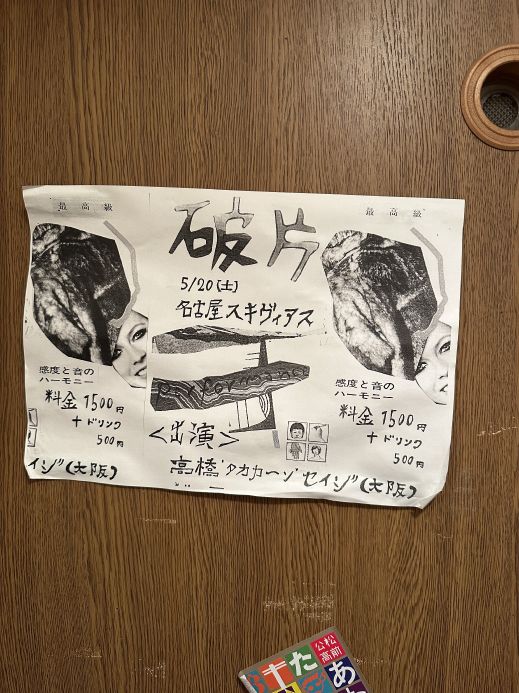 最高級
感度と音の
ハーモニー
料金 1500円
+ ドリンク
500円
イジ(大阪)
破片
5/20(土)
名古屋スキヴィアス
performance
<出演>
高橋 タカカーン セイジ(大阪)
最高級
感度と音の
ハーモニー
料金 1500円
+ ドリンク
500円
松前
公高
あ
た
キ